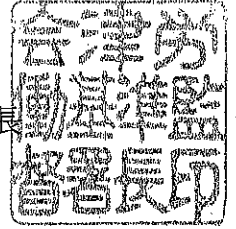 長
会津労
働基準監
督署長印